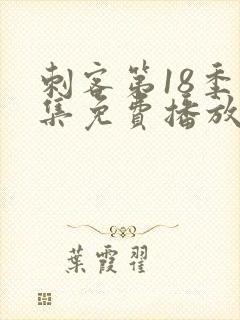 刺客第18季
集免費播放
葉霞翟